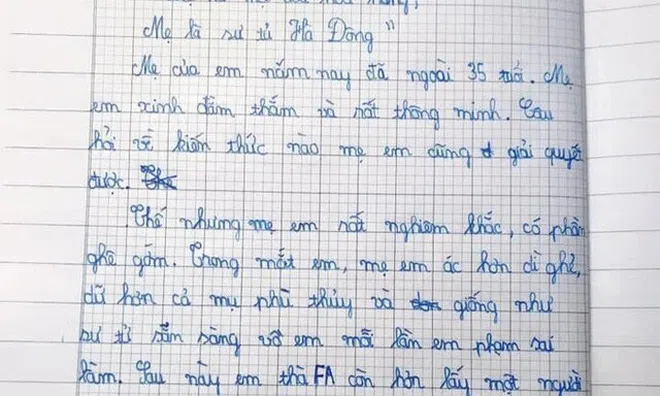 Mẹ là sư tử Hà Đông"
Mẹ của em năm nay đã ngoài 35 tuổi. Mẹ
em xinh đằm thắm và rất thông minh. Câu
hỏi về kiến thức nào mẹ em cũng giải quyết
được.
Thế nhưng mẹ em rất nghiêm khắc, có phần
ghê gớm. Trong mắt em, mẹ em ác hơn dì ghẻ,
dữ hơn cả mụ phù thủy và giống như
sư tử sẵn sàng vồ em mỗi lần em phạm sai
lầm. Sau này em thà FA còn hơn lấy một người